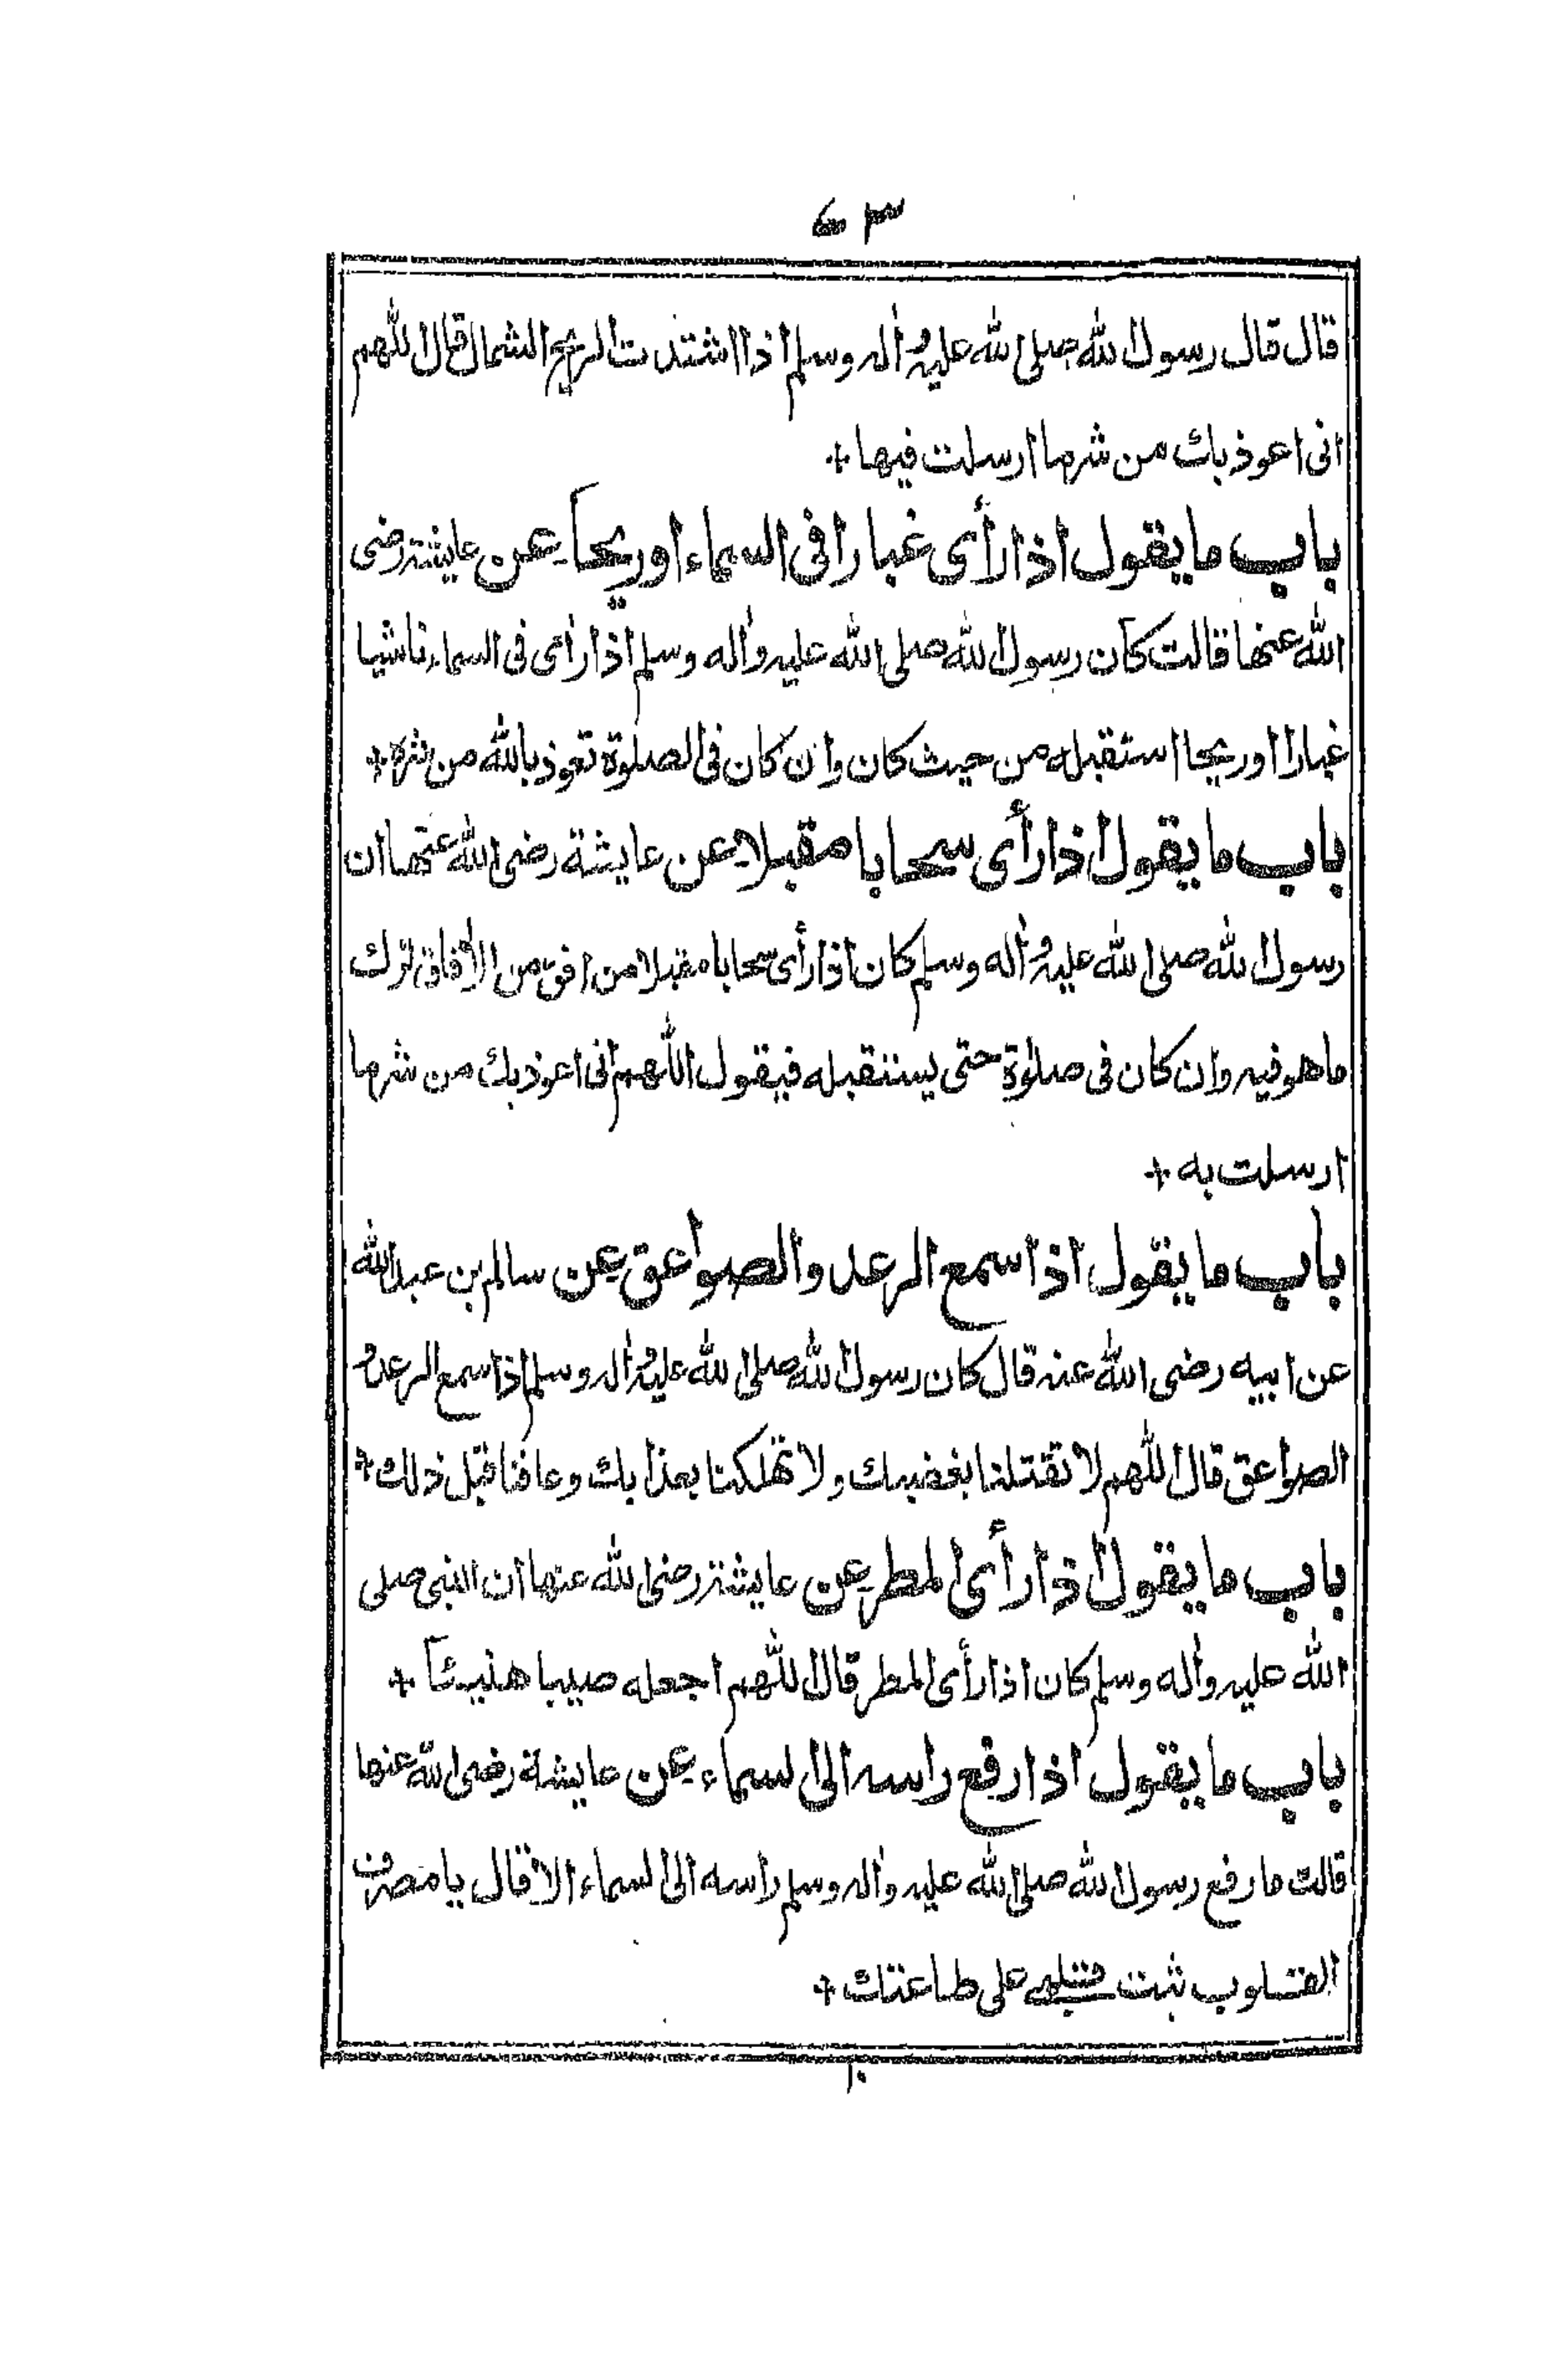 قال قال رسول الله صلى الله عليه وآله وسلم اذا اشتدت الريح الشمال قال اللهم
انى اعوذ بك من شر ما ارسلت فيها +
باب ما يقول اذا رأى غبارا فى السماء او ريحا عن عايشة رضى
الله عنها قالت كان رسول الله صلى الله عليه وآله وسلم اذا رأى فى السماء ناشيا
غبارا او ريحا استقبله من حيث كان وان كان فى الصلوة تعوذ بالله من شره +
باب ما يقول اذا رأى سحابا مقبلا عن عايشة رضى الله عنها ان
رسول الله صلى الله عليه وآله وسلم كان اذا رأى سحابا مقبلا من افق من الأفاق ترك
ما هو فيه وان كان فى صلوة حتى يستقبله فيقول اللهم انى اعوذ بك من شر ما
ارسلت به +
باب ما يقول اذا سمع الرعد والصواعق عن سالم بن عبد الله
عن ابيه رضى الله عنه قال كان رسول الله صلى الله عليه وآله وسلم اذا سمع الرعد و
الصواعق قال اللهم لا تقتلنا بغضبك ولا تهلكنا بعذابك وعافنا قبل ذلك +
باب ما يقول اذا رأى المطر عن عايشة رضى الله عنها ان النبى صلى
الله عليه وآله وسلم كان اذا رأى المطر قال اللهم اجعله صيبا هنيئا +
باب ما يقول اذا رفع راسه الى السماء عن عايشة رضى الله عنها
قالت ما رفع رسول الله صلى الله عليه وآله وسلم راسه الى السماء الا قال يا مصرف
القلوب ثبت قلبى على طاعتك +